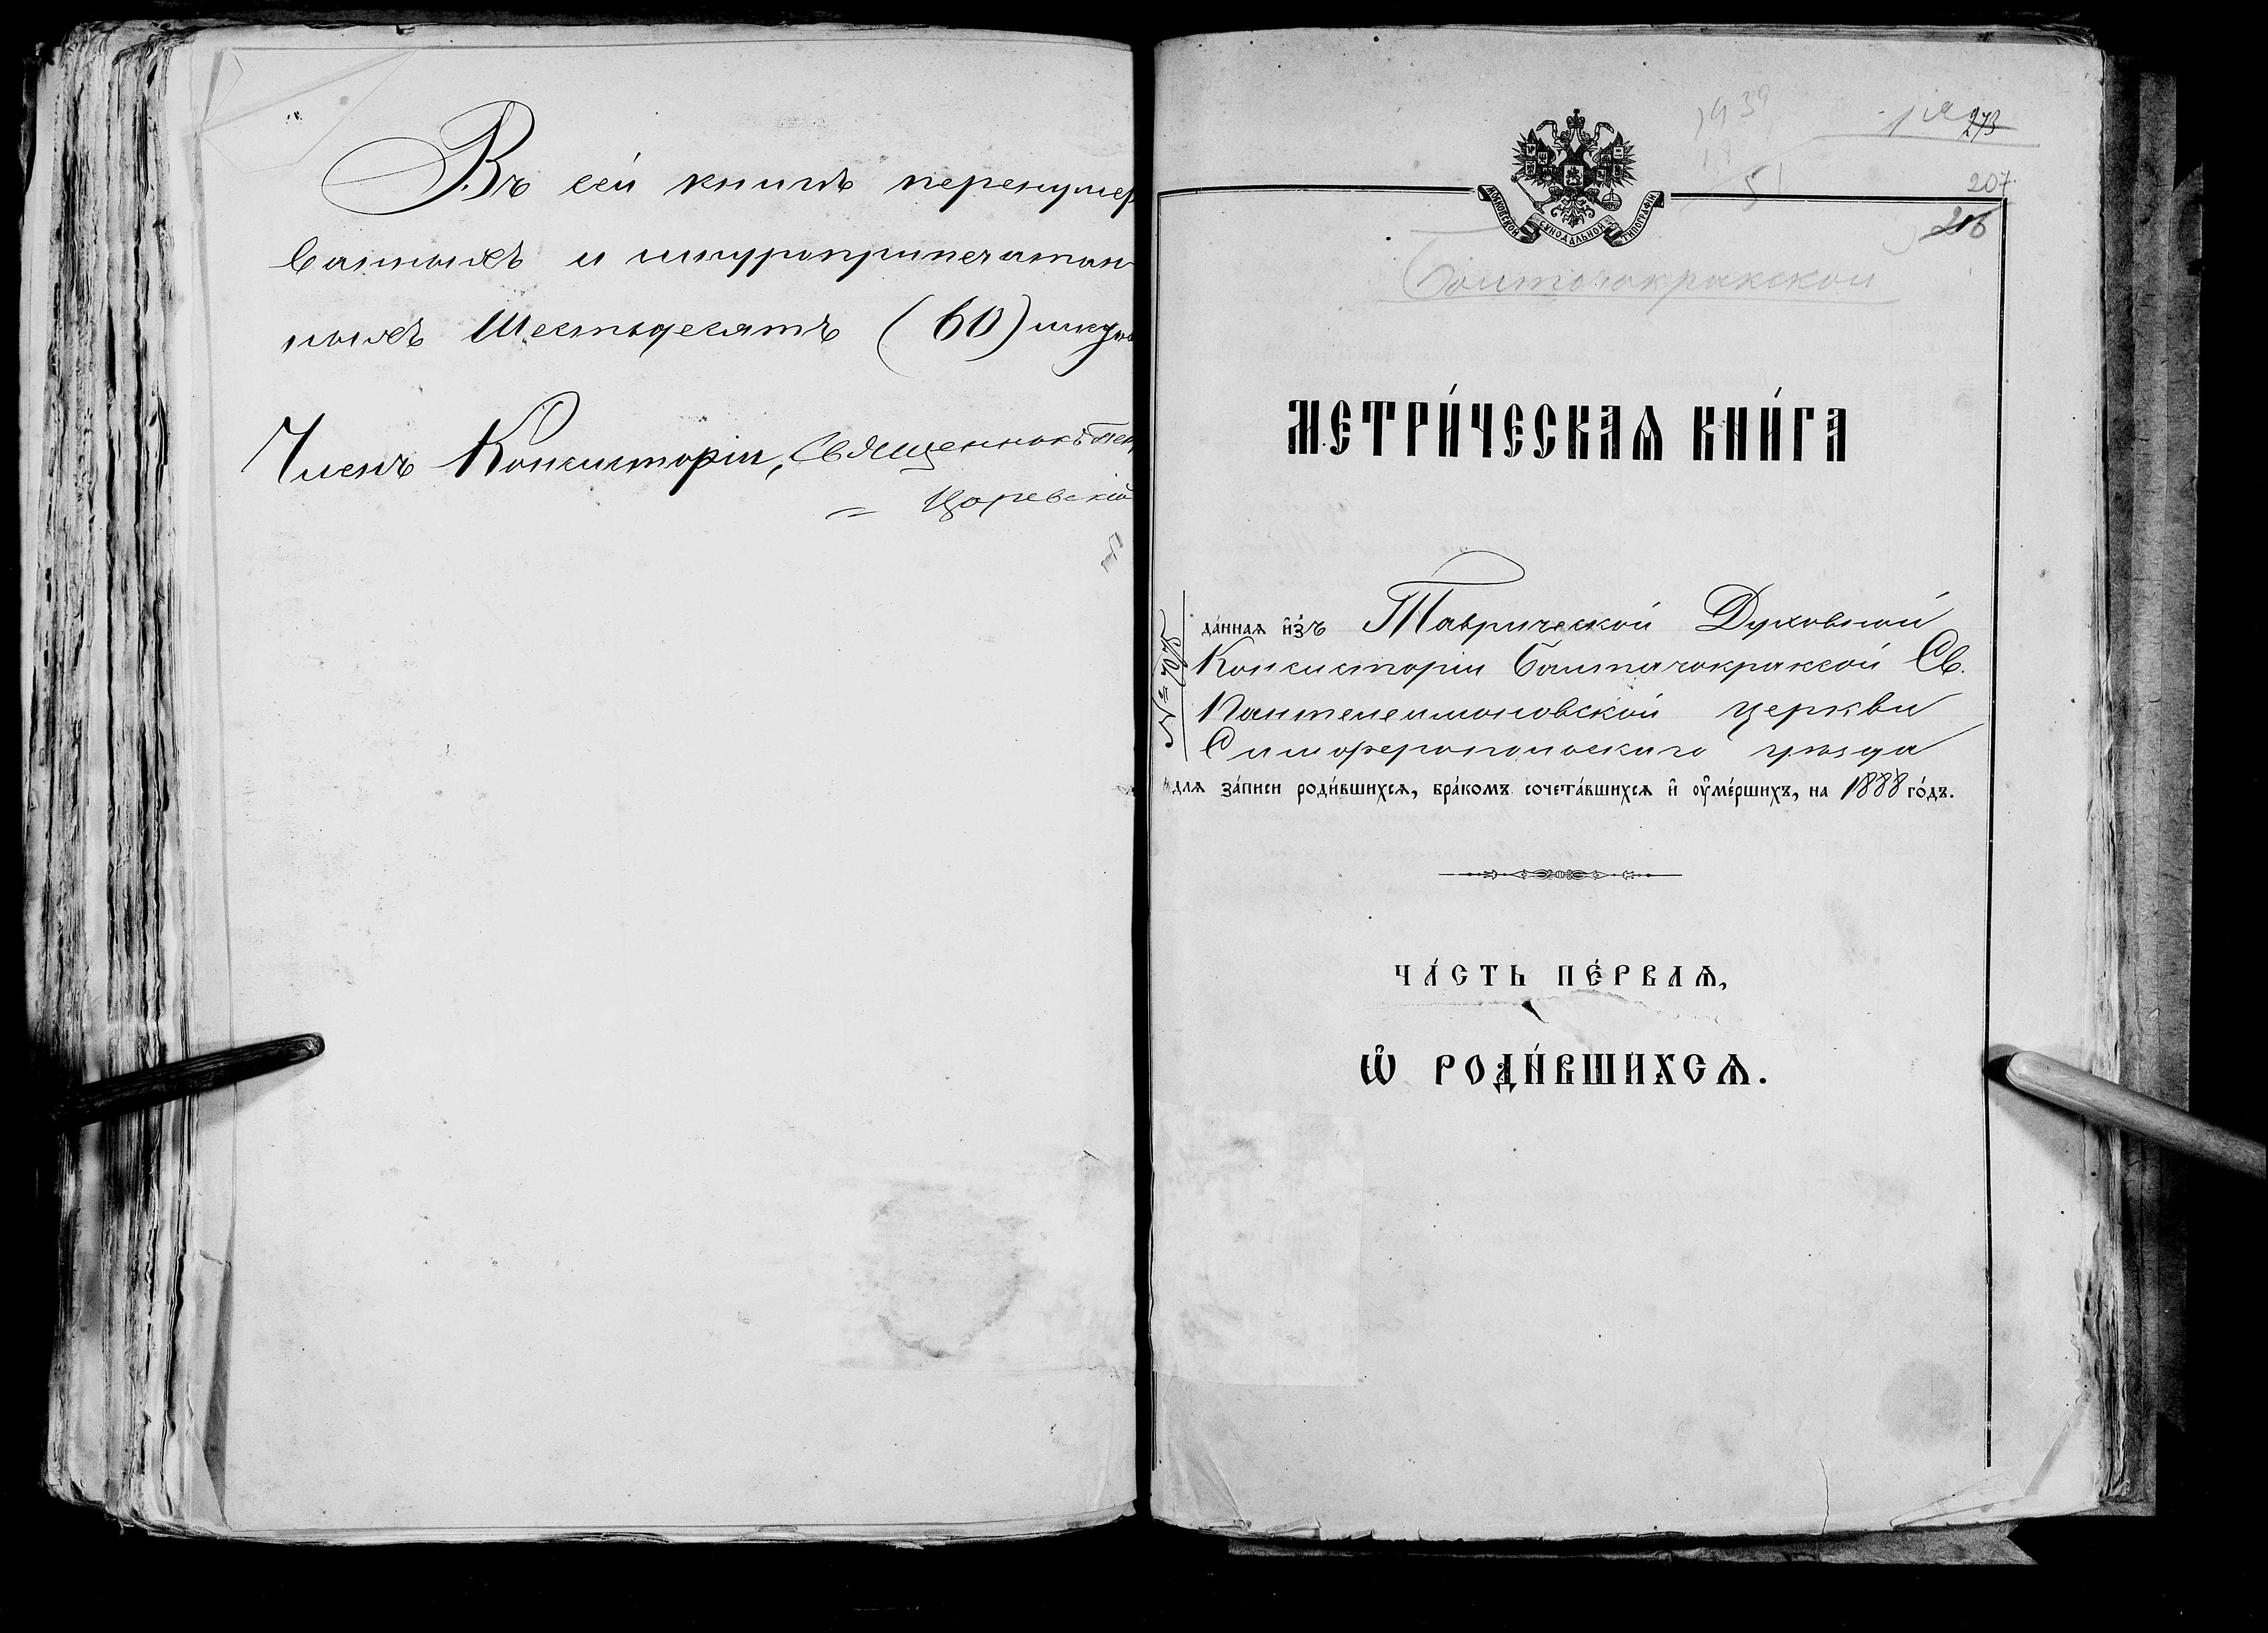 Въ сей книгѣ перенумер
ванныхъ и шнуроприпечатан
ныхъ Шестьдесятъ (60)
Членъ Консисторіи, Священникъ
= Царевскій
273
207.
206
МОСКОВСКОЙ СѴНОДАЛЬНОЙ ТИПОГРАФІИ
Баштачокракской
МЕТРИ́ЧЕСКАѦ КНИ́ГА
да́ннаѧ и҆з̾ Таврической Духовной
Консисторіи Баштачокракской Св.
Пантелеимоновской церкви
Симферопольскаго уѣзда
длѧ за́писи роди́вшихсѧ, бра́комъ сочета́вшихсѧ и҆ ᲂу҆ме́ршихъ, на 1888 го́дъ.
ЧА́СТЬ ПЕ́РВАѦ,
Ѡ҆ РОДИ́ВШИХСѦ.